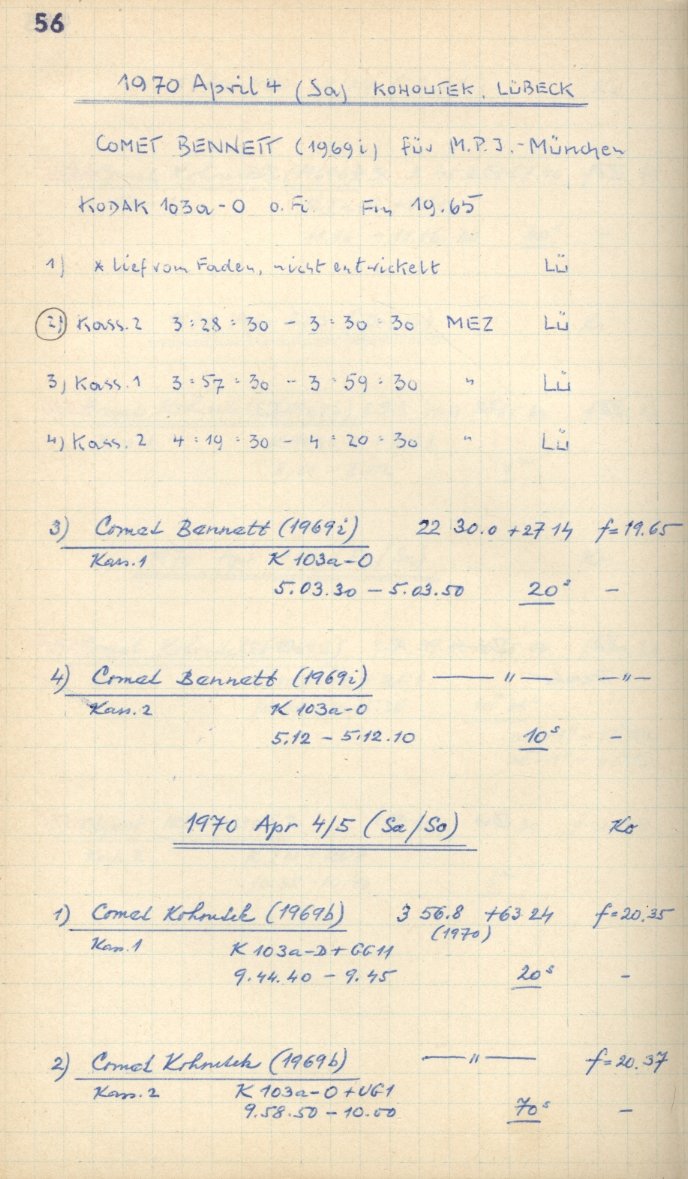 56
1970 April 4 (Sa) KOHOUTEK, LÜBECK
COMET BENNETT (1969i) für M.P.I.-München
KODAK 103a-O o.Fi. Fm 19.65
1) * lief vom Faden, nicht entwickelt LÜ
2) Kass. 2 3:28:30 - 3:30:30 MEZ LÜ
3) Kass. 1 3:57:30 - 3:59:30 " LÜ
4) Kass. 2 4:19:30 - 4:20:30 " LÜ
3) Comet Bennett (1969i) 22 30.0 +27 14 f=19.65
Kass. 1 K 103a-O
5.03.30 - 5.03.50 20s -
4) Comet Bennett (1969i) — " — — " —
Kass. 2 K 103a-O
5.12 - 5.12.10 10s -
1970 Apr 4/5 (Sa/So) Ko
1) Comet Kohoutek (1969b) 3 56.8 +63 24 f=20.35
(1970)
Kass. 1 K 103a-D + GG11
9.44.40 - 9.45 20s -
2) Comet Kohoutek (1969b) — " — f=20.37
Kass. 2 K 103a-O + UG1
9.58.50 - 10.00 70s -